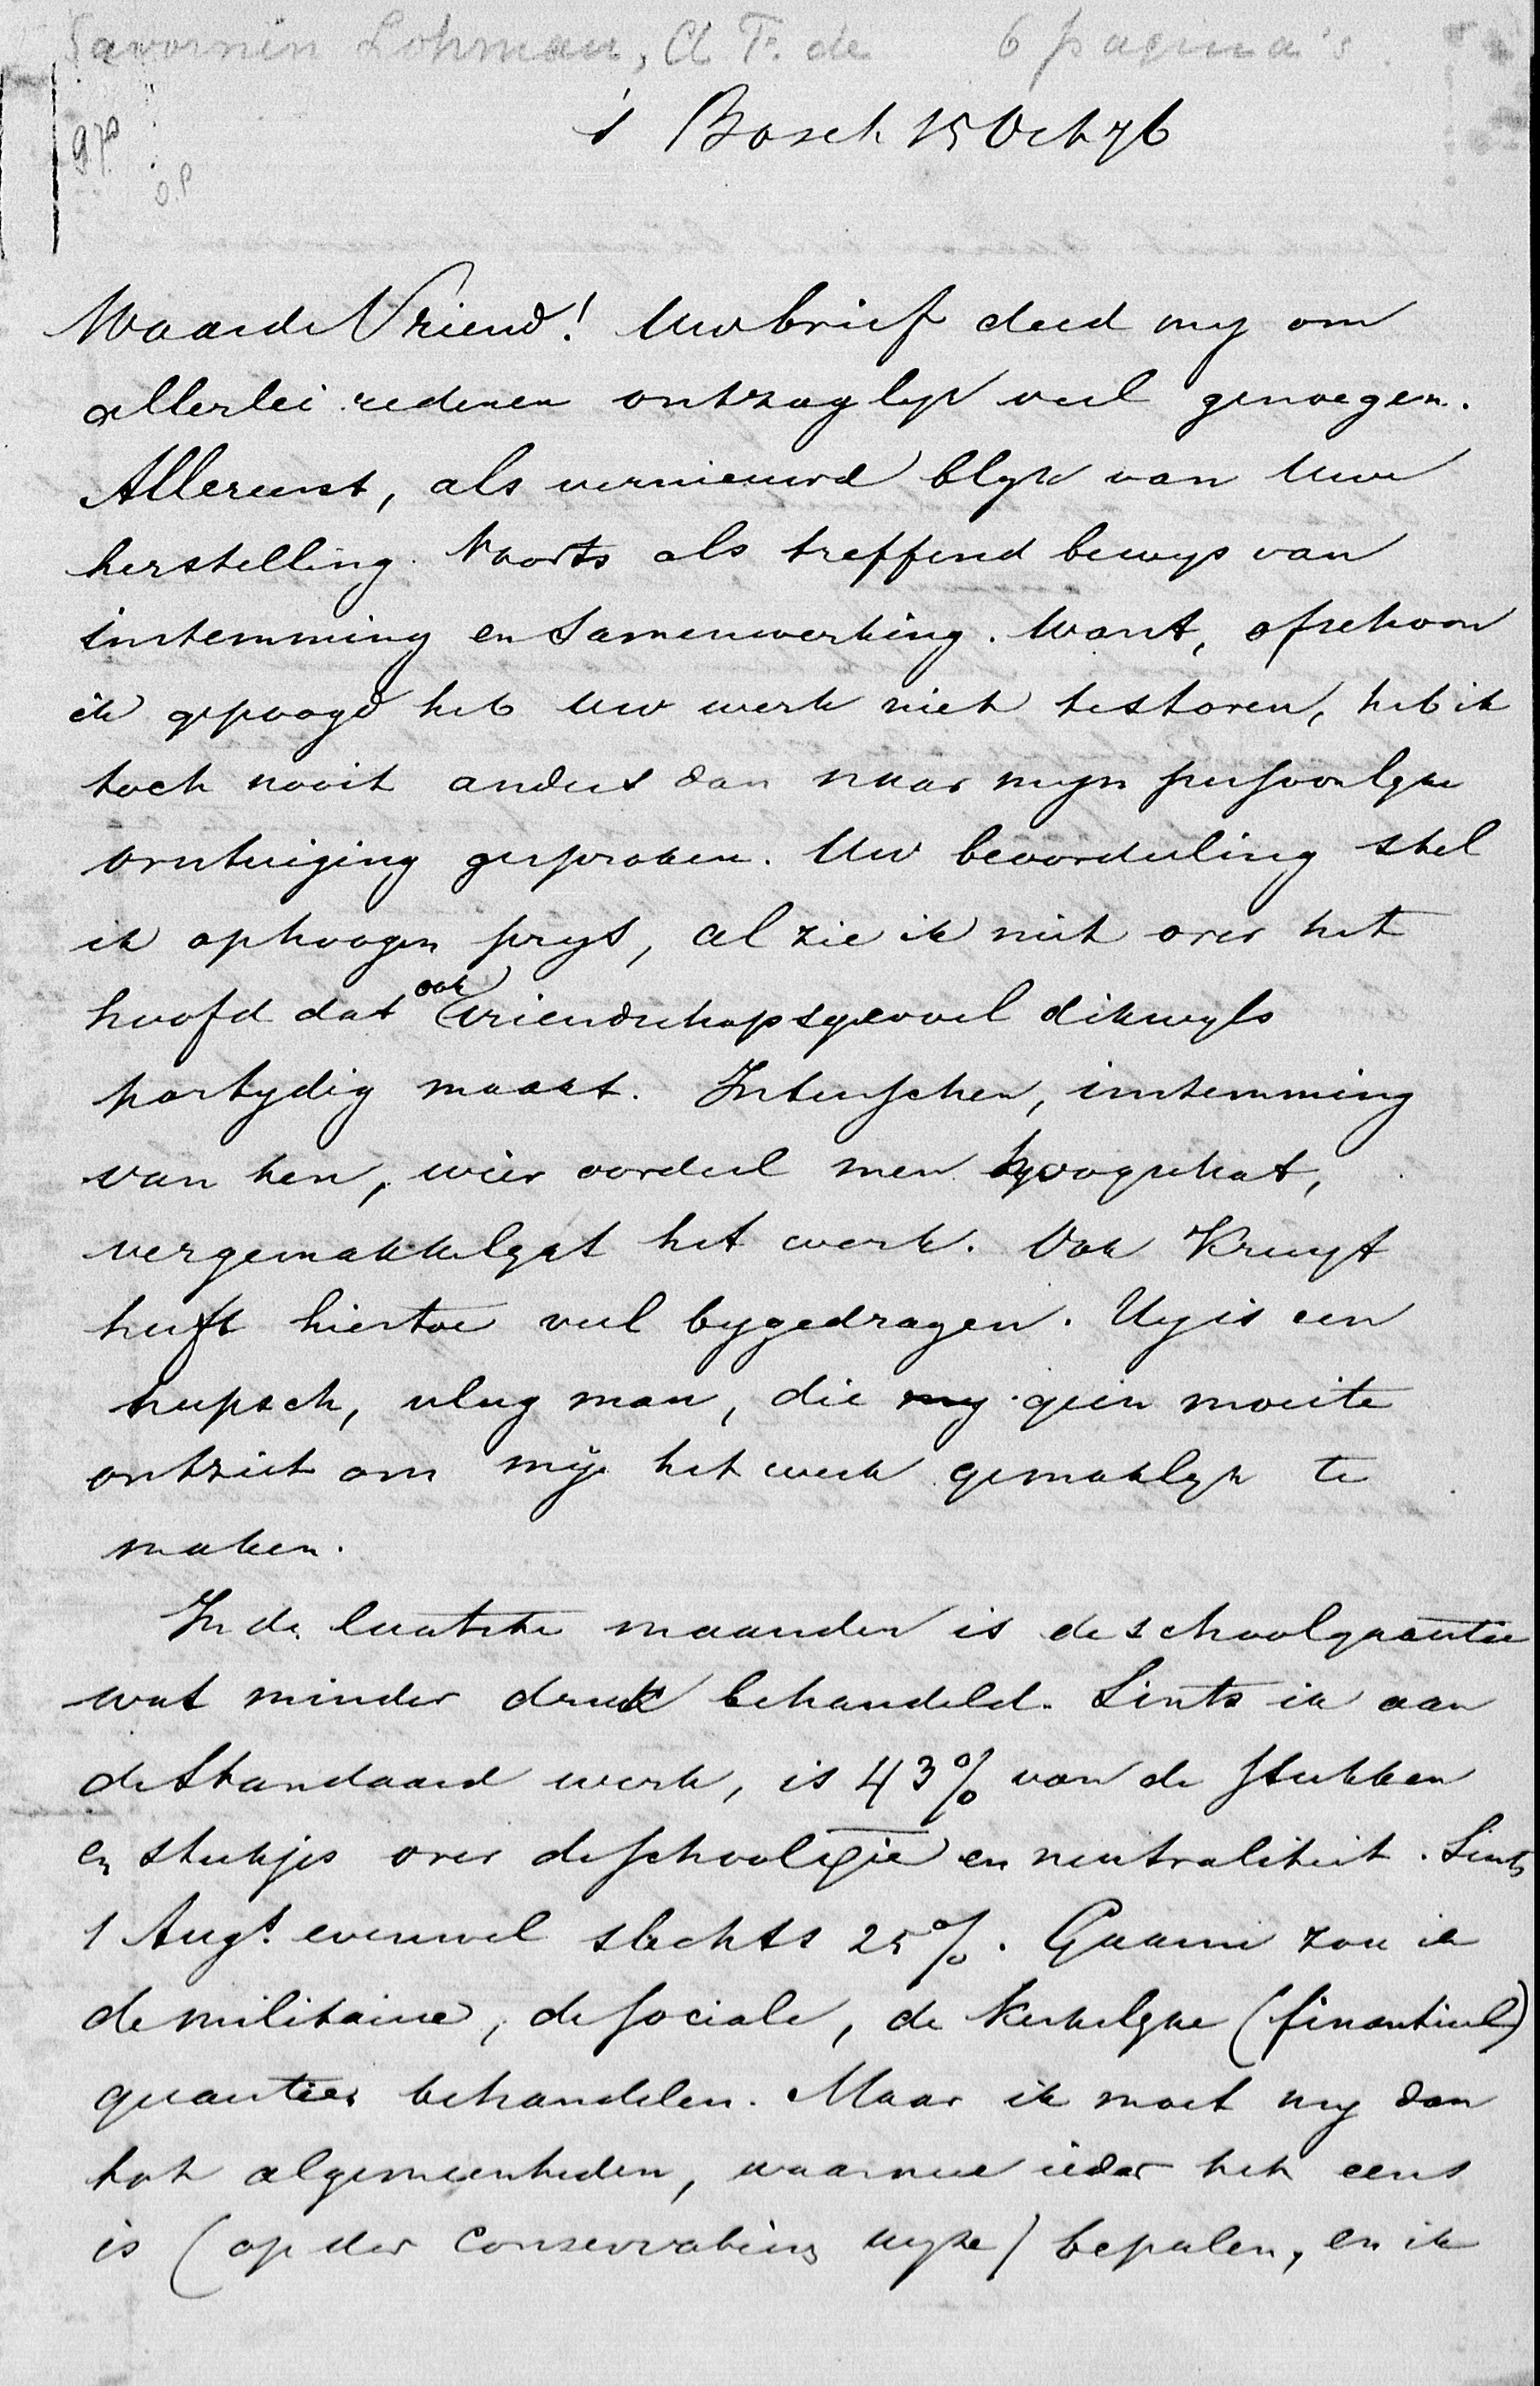 Savornin Lohman, A F. de 6 pagina's
's Bosch 15 Oct 76
Waarde Vriend! Uw brief deed my om
allerlei redenen ontzaglyk veel genoegen.
Allereerst, als vernieuwd blyk van Uwe
herstelling. Voorts als treffend bewys van
instemming en samenwerking. Want, ofschoon
ik gepoogd heb Uw werk niet te storen, heb ik
toch nooit anders dan naar myn persoonlyke
overtuiging gesproken. Uw beoordeeling stel
ik op hoogen prys, al zie ik niet over het
hoofd dat ook vriendschapsgevoel dikwyls
partydig maakt. Intusschen, instemming
van hen, wier oordeel men hoogschat,
vergemakkelykt het werk. Ook Kruyt
heeft hiertoe veel bygedragen. Hy is een
heupsch, vlug man, die my geen moeite
ontziet om mij het werk gemaklyk te
maken.
In de laatste maanden is de schoolquaestie
wat minder druk behandeld. Sints ik aan
de Standaard werk, is 43% van de stukken
en stukjes over de schoolqie en neutraliteit. Sints
1 Augt. evenwel slechts 25%. Gaarne zou ik
de militaire, de sociale, de kerkelyke (finantieel)
quaesties behandelen. Maar ik moet my dan
tot algemeenheden, waarmee ieder het eens
is (op der conservatieven wyze) bepalen, en ik